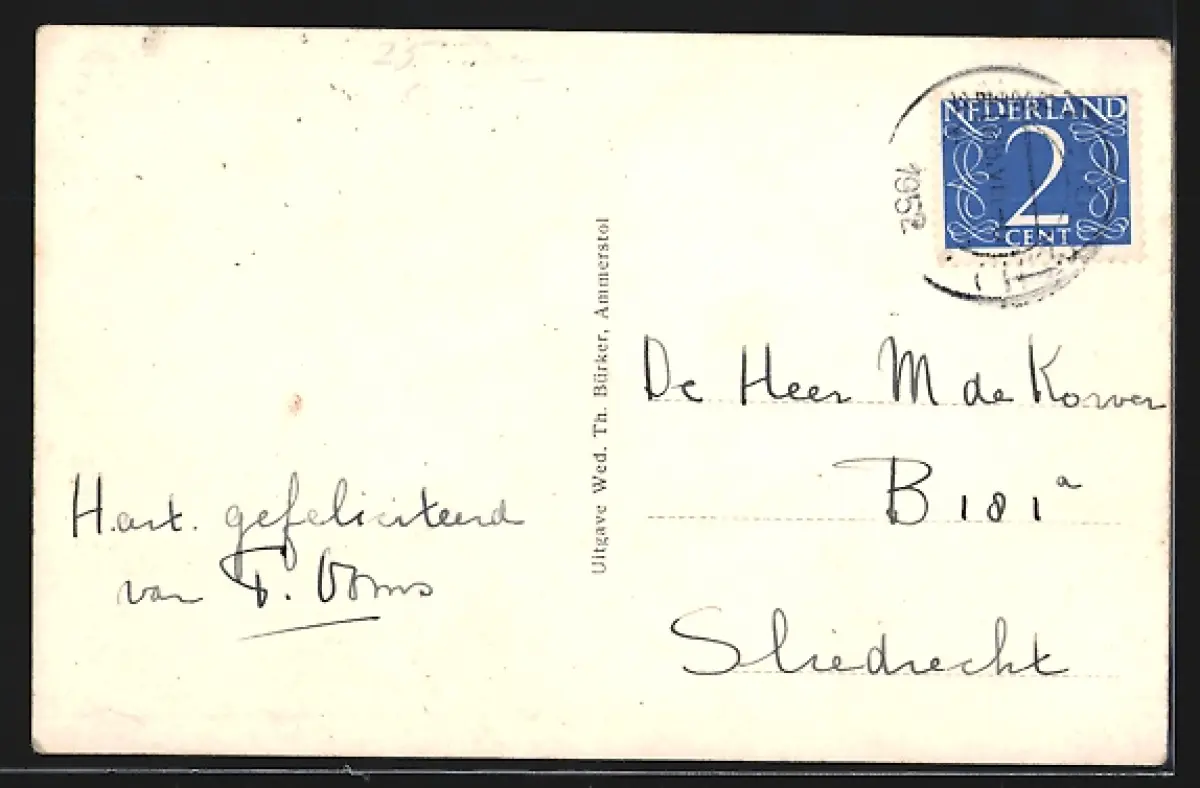 Hart. gefeliciteerd
van
Uitgave Wed. Th. Bürker, Ammerstol
1952
NEDERLAND
2
CENT
De Heer M de Korver
B 181 a
Sliedrecht